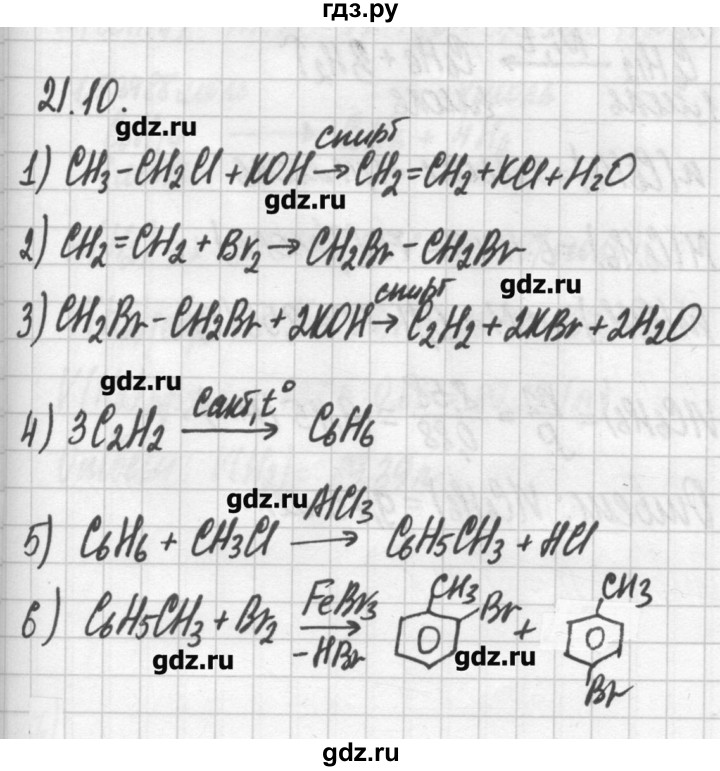 гдз.ру
21.10.
gdz.ru
1) CH3-CH2Cl + KOH →спирт CH2=CH2 + KCl + H2O
gdz.ru
2) CH2=CH2 + Br2 → CH2Br - CH2Br
gdz.ru
3) CH2Br - CH2Br + 2KOH →спирт C2H2 + 2KBr + 2H2O
gdz.ru
4) 3C2H2 →Cакт, t° C6H6
gdz.ru
5) C6H6 + CH3Cl →AlCl3 C6H5CH3 + HCl
6) C6H5CH3 + Br2 →FeBr3 -HBr CH3 Br + CH3 Br
gdz.ru gdz.ru
gdz.ru